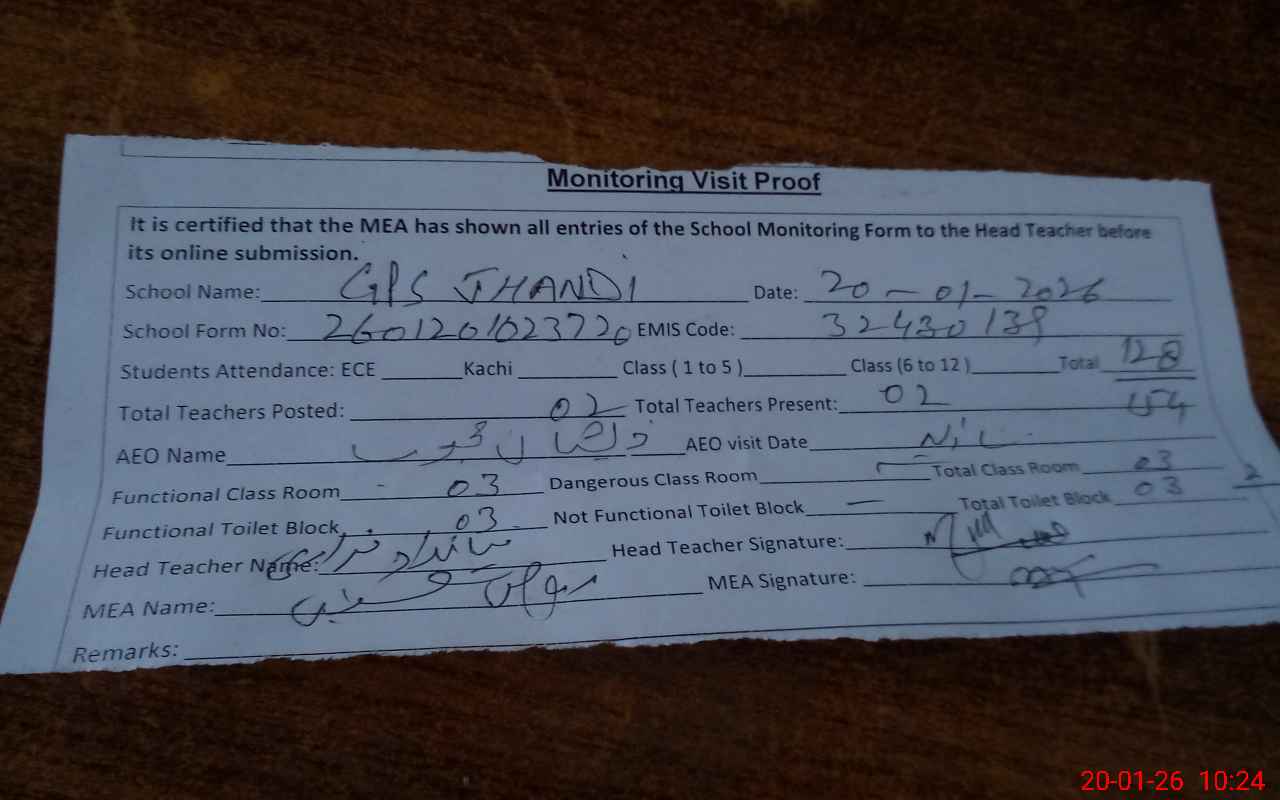 Monitoring Visit Proof
It is certified that the MEA has shown all entries of the School Monitoring Form to the Head Teacher before
its online submission.
School Name: GPS JHANDI Date: 20-01-2026
School Form No: 2601201023720 EMIS Code: 32430139
Students Attendance: ECE Kachi Class ( 1 to 5 ) Class (6 to 12 ) Total 128
154
Total Teachers Posted: 02 Total Teachers Present: 02
AEO Name AEO visit Date Nil
Functional Class Room 03 Dangerous Class Room — Total Class Room 03
Functional Toilet Block 03 Not Functional Toilet Block — Total Toilet Block 03
Head Teacher Name: Head Teacher Signature:
MEA Name: MEA Signature:
Remarks:
20-01-26 10:24